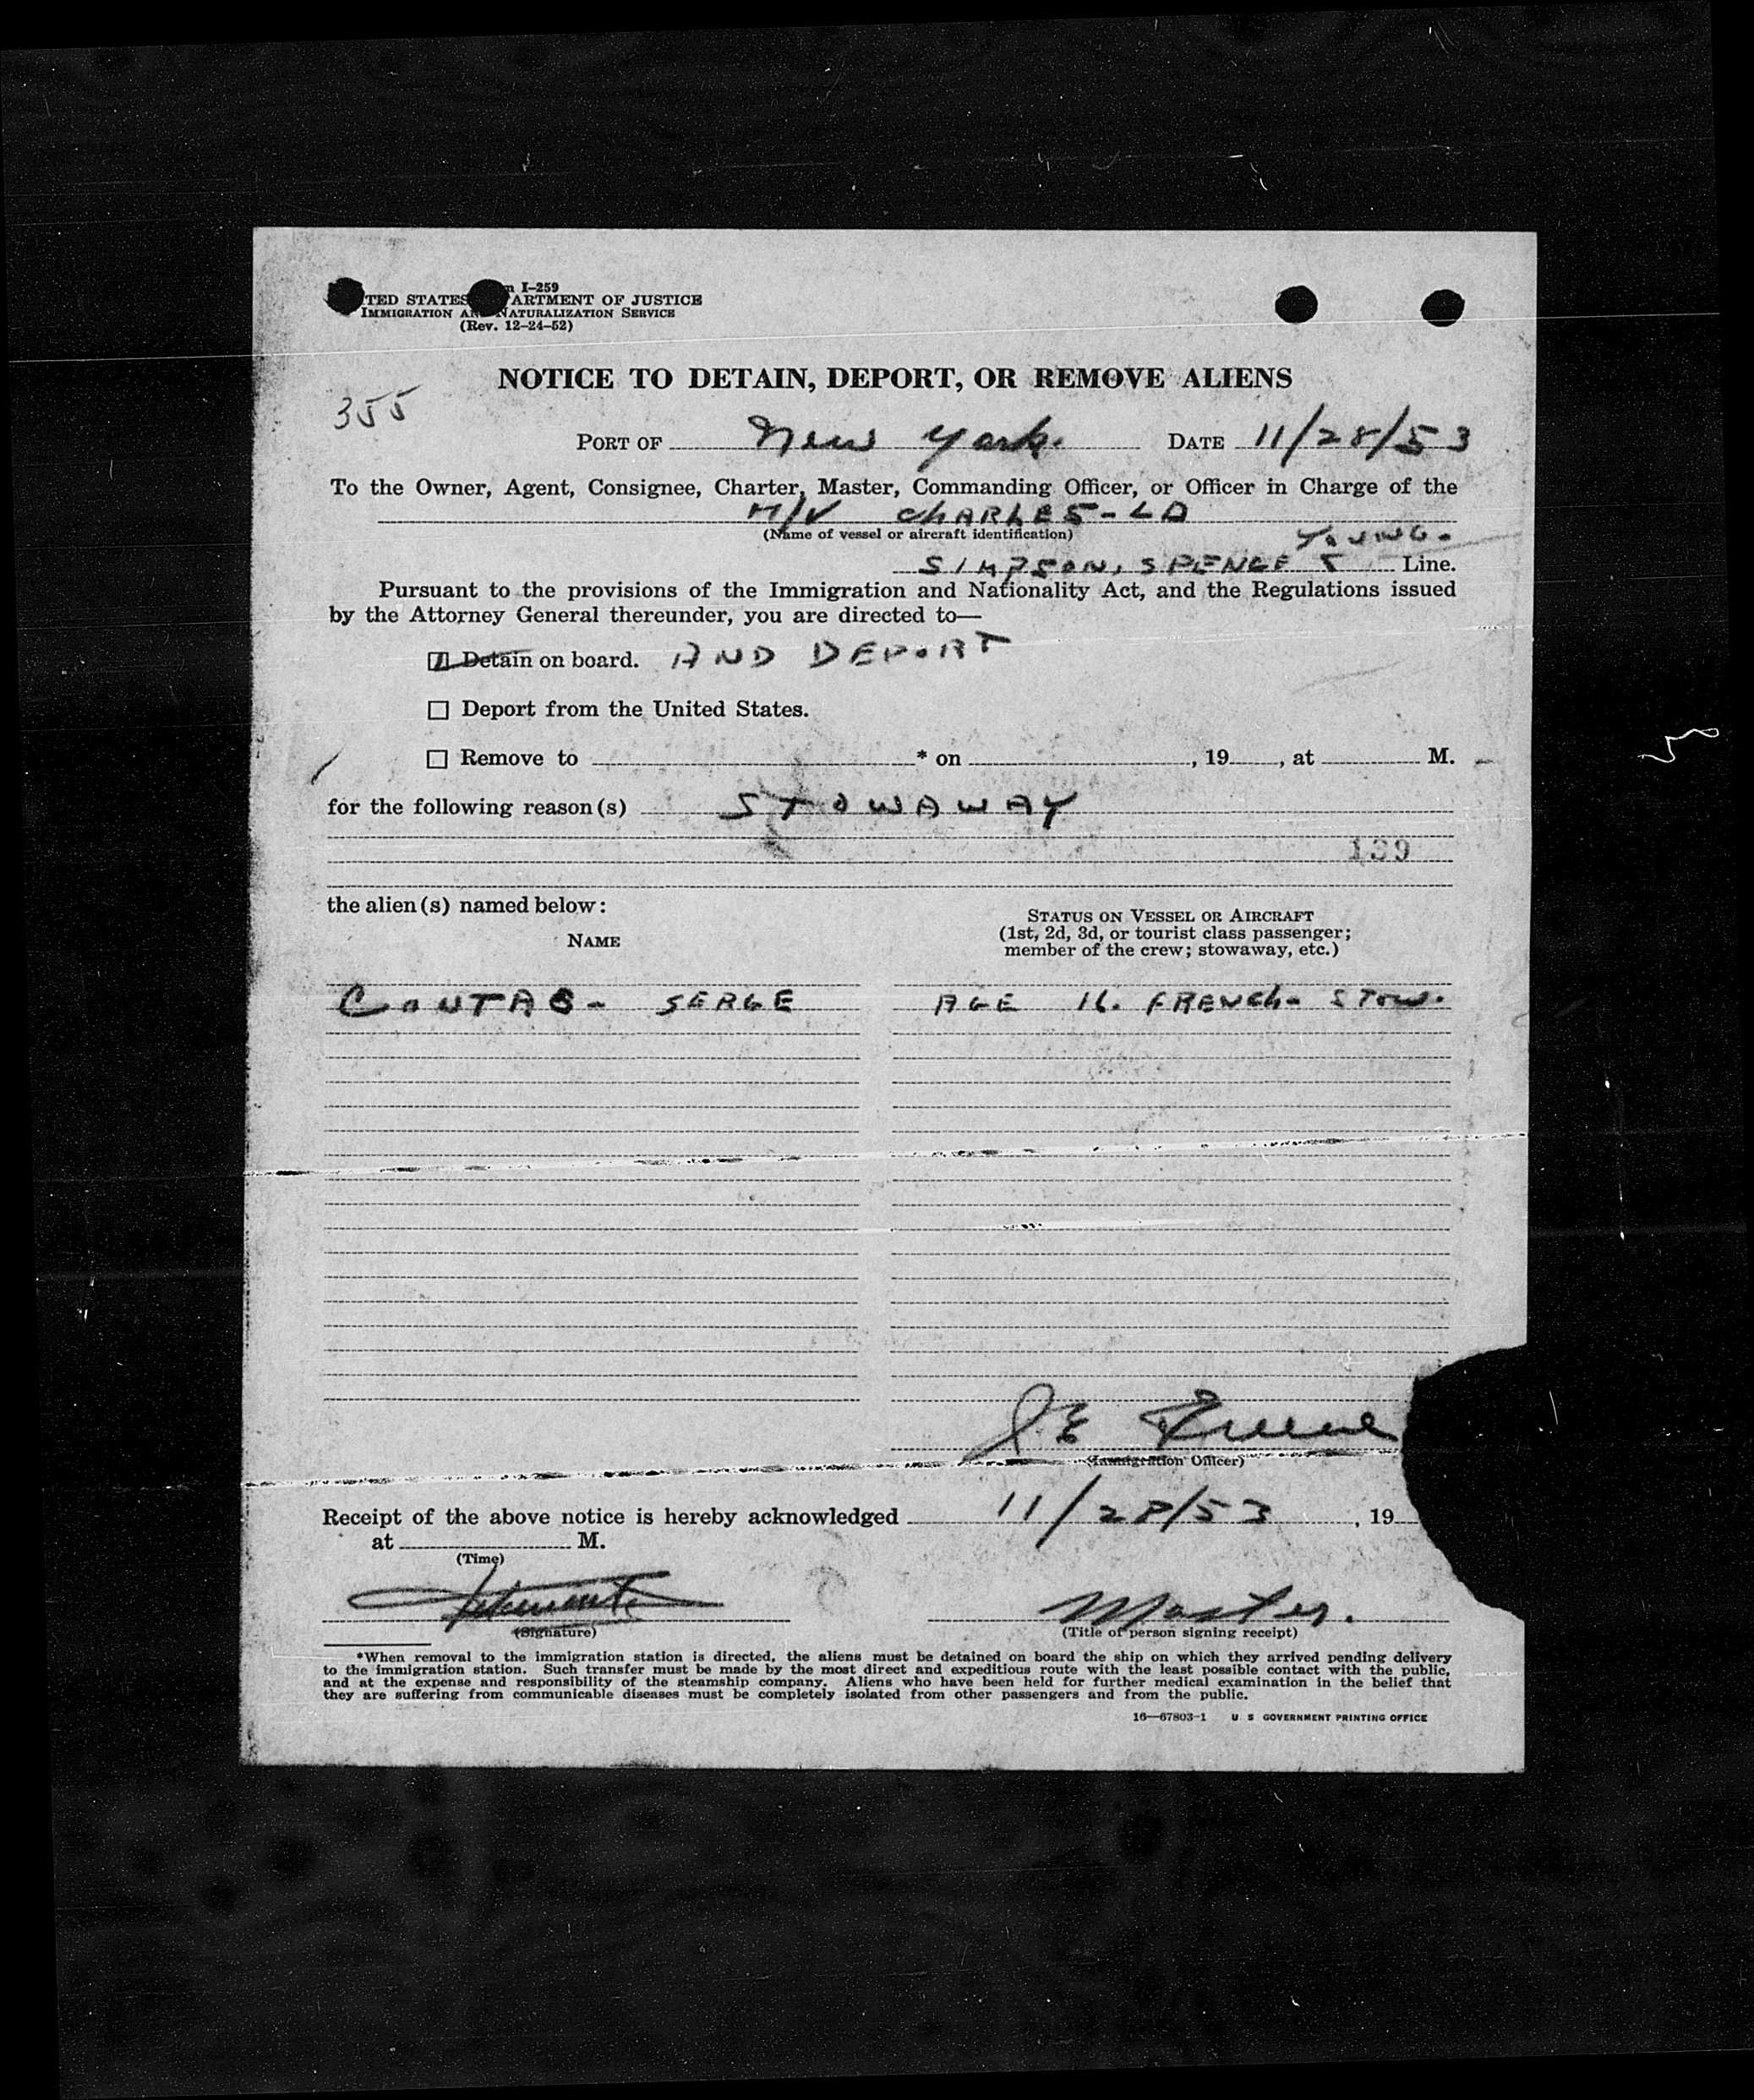 I-259
TED STATES ARTMENT OF JUSTICE
IMMIGRATION AN NATURALIZATION SERVICE
(Rev. 12-24-52)
NOTICE TO DETAIN, DEPORT, OR REMOVE ALIENS
355
PORT OF New York. DATE 11/28/53
To the Owner, Agent, Consignee, Charter, Master, Commanding Officer, or Officer in Charge of the
M/V CHARLES-LD
(Name of vessel or aircraft identification)
YOUNG.
SIMPSON, SPENCE & Line.
Pursuant to the provisions of the Immigration and Nationality Act, and the Regulations issued
by the Attorney General thereunder, you are directed to—
Detain on board. AND DEPORT
☐ Deport from the United States.
☐ Remove to * on , 19 , at M.
for the following reason(s) STOWAWAY
139
the alien(s) named below:
NAME
STATUS ON VESSEL OR AIRCRAFT
(1st, 2d, 3d, or tourist class passenger;
member of the crew; stowaway, etc.)
SERGE AGE 16. FRENCH- STOW.
J.E.
(Immigration Officer)
Receipt of the above notice is hereby acknowledged 11/28/53 , 19
at M.
(Time)
Master.
(Signature) (Title of person signing receipt)
*When removal to the immigration station is directed, the aliens must be detained on board the ship on which they arrived pending delivery
to the immigration station. Such transfer must be made by the most direct and expeditious route with the least possible contact with the public,
and at the expense and responsibility of the steamship company. Aliens who have been held for further medical examination in the belief that
they are suffering from communicable diseases must be completely isolated from other passengers and from the public.
16—67803-1 U S GOVERNMENT PRINTING OFFICE